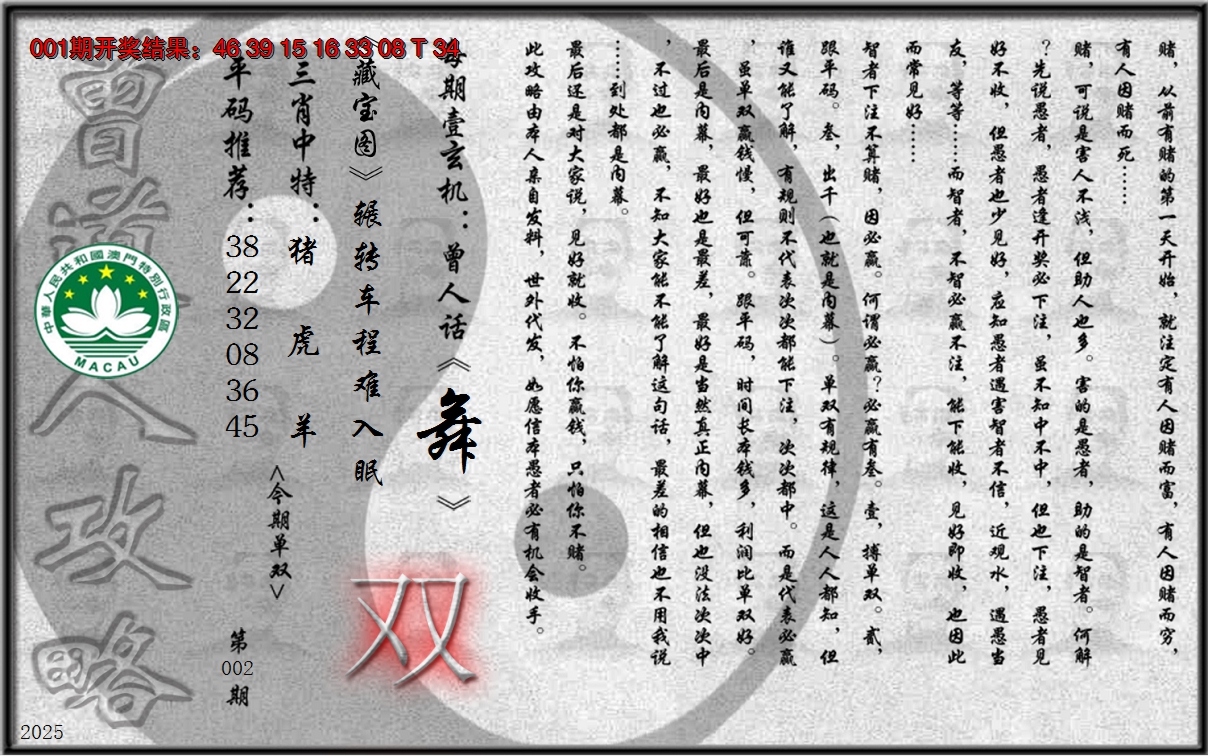 001期开奖结果：46 39 15 16 33 08 T 34
赌，从前有赌的第一天开始，就注定有人因赌而富，有人因赌而穷，
有人因赌而死……
赌，可说是害人不浅，但助人也多。害的是愚者，助的是智者。何解
？先说愚者，愚者逢开奖必下注，虽不知中不中，但也下注，愚者见
好不收，但愚者也少见好，应知愚者遇害智者不信，近观水，遇愚当
友，等等……而智者，不智必赢不注，能下能收，见好即收，也因此
而常见好……
智者下注不算赌，因必赢。何谓必赢？必赢有叁。壹，搏单双。贰，
跟平码。叁，出千（也就是内幕）。单双有规律，这是人人都知，但
谁又能了解，有规则不代表次次都能下注，次次都中。而是代表必赢
，虽单双赢钱慢，但可靠。跟平码，时间长本钱多，利润比单双好。
最后是内幕，最好也是最差，最好是当然真正内幕，但也没法次次中
，不过也必赢，不知大家能不能了解这句话，最差的相信也不用我说
……到处都是内幕。
最后还是对大家说，见好就收。不怕你赢钱，只怕你不赌。
此攻略由本人亲自发料，世外代发，如愿信本愚者必有机会收手。
每期壹玄机：曾人话《舞》
《藏宝图》辗转车程难入眠
双
三肖中特：猪 虎 羊
<今期单双>
平码推荐：
38
22
32
08
36
45
第
002
期
曾道人攻略
中華人民共和國澳門特別行政區
MACAU
2025